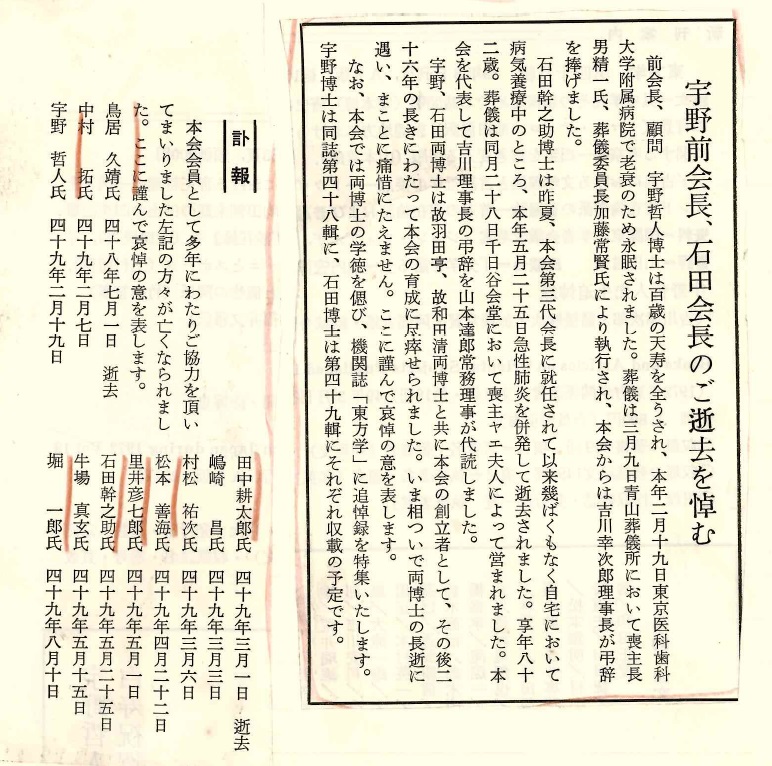 宇野前会長、石田会長のご逝去を悼む
前会長、顧問　宇野哲人博士は百歳の天寿を全うされ、本年二月十九日東京医科歯科
大学附属病院で老衰のため永眠されました。葬儀は三月九日青山葬儀所において喪主長
男精一氏、葬儀委員長加藤常賢氏により執行され、本会からは吉川幸次郎理事長が弔辞
を捧げました。
石田幹之助博士は昨夏、本会第三代会長に就任されて以来幾ばくもなく自宅において
病気養療中のところ、本年五月二十五日急性肺炎を併発して逝去されました。享年八十
二歳。葬儀は同月二十八日千日谷会堂において喪主ヤエ夫人によって営まれました。本
会を代表して吉川理事長の弔辞を山本達郎常務理事が代読しました。
宇野、石田両博士は故羽田亨、故和田清両博士と共に本会の創立者として、その後二
十六年の長きにわたって本会の育成に尽瘁せられました。いま相ついで両博士の長逝に
遇い、まことに痛惜にたえません。ここに謹んで哀悼の意を表します。
なお、本会では両博士の学徳を偲び、機関誌「東方学」に追悼録を特集いたします。
宇野博士は同誌第四十八輯に、石田博士は第四十九輯にそれぞれ収載の予定です。
訃報
本会会員として多年にわたりご協力を頂い
てまいりました左記の方々が亡くなられまし
た。ここに謹んで哀悼の意を表します。
鳥居　久靖氏　四十八年七月一日　逝去
中村　拓氏　四十九年二月七日
宇野　哲人氏　四十九年二月十九日
田中耕太郎氏　四十九年三月一日　逝去
嶋崎　昌氏　四十九年三月三日
村松　祐次氏　四十九年三月六日
松本　善海氏　四十九年四月二十二日
里井彦七郎氏　四十九年五月一日
石田幹之助氏　四十九年五月二十五日
牛場　真玄氏　四十九年五月十五日
堀　一郎氏　四十九年八月十日